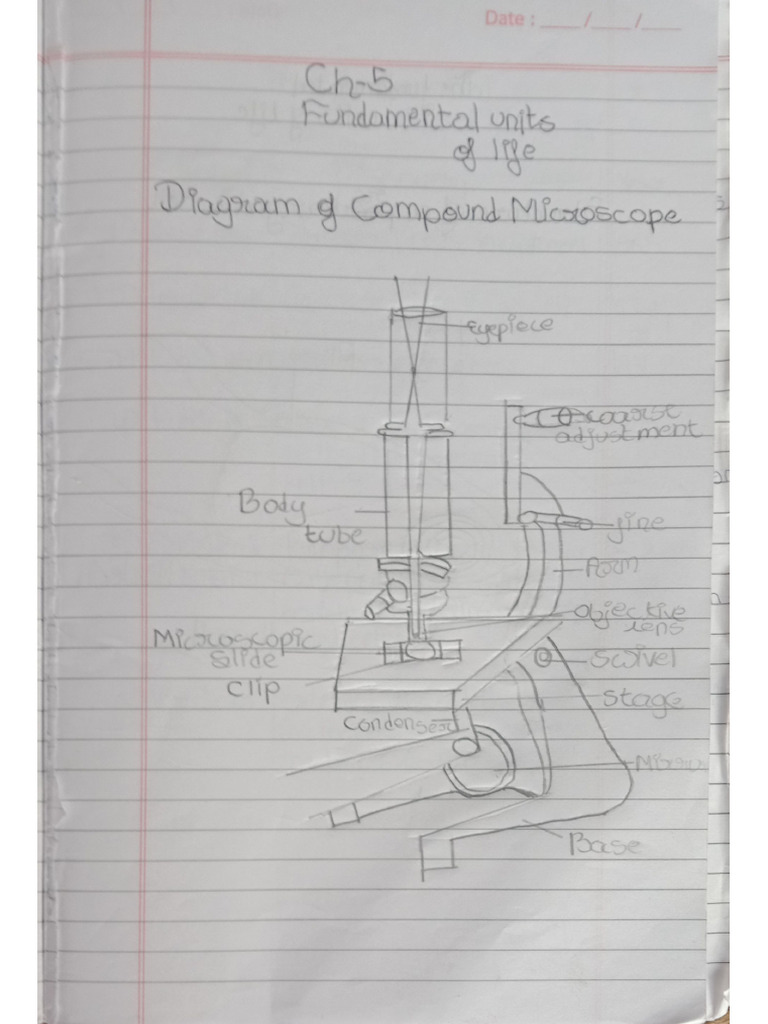 Date : ___/___/___
Ch-5
Fundamental units
of life
Diagram of Compound Microscope
Eyepiece
coarse
adjustment
Body
tube
fine
Arm
objective
lens
Microscopic
slide
swivel
clip
stage
condenser
Base